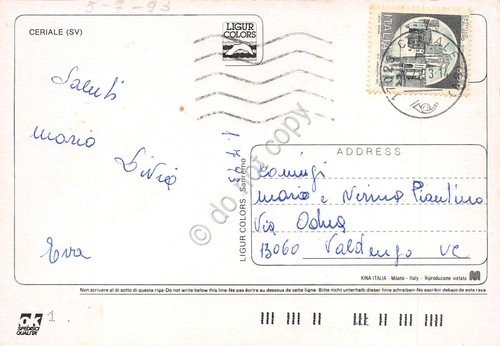 5-7-93
CERIALE (SV)
LIGUR
COLORS
ITALIA
17023 CERIALE
Saluti
Mario
Livia
Eva
do not copy
LIGUR COLORS Sanremo
ADDRESS
Maria e Nerina
Via
13060 Valdengo VC
KINA ITALIA - Milano - Italy - Riproduzione vietata
Non scrivere al di sotto di questa riga-Do not write below this line-Ne pas écrire au dessous de cette ligne- Bitte nicht unterhalb dieser linie schreiben-No escribir debajo de esta raya
OK
SPEDISCI
QUALITA'
1